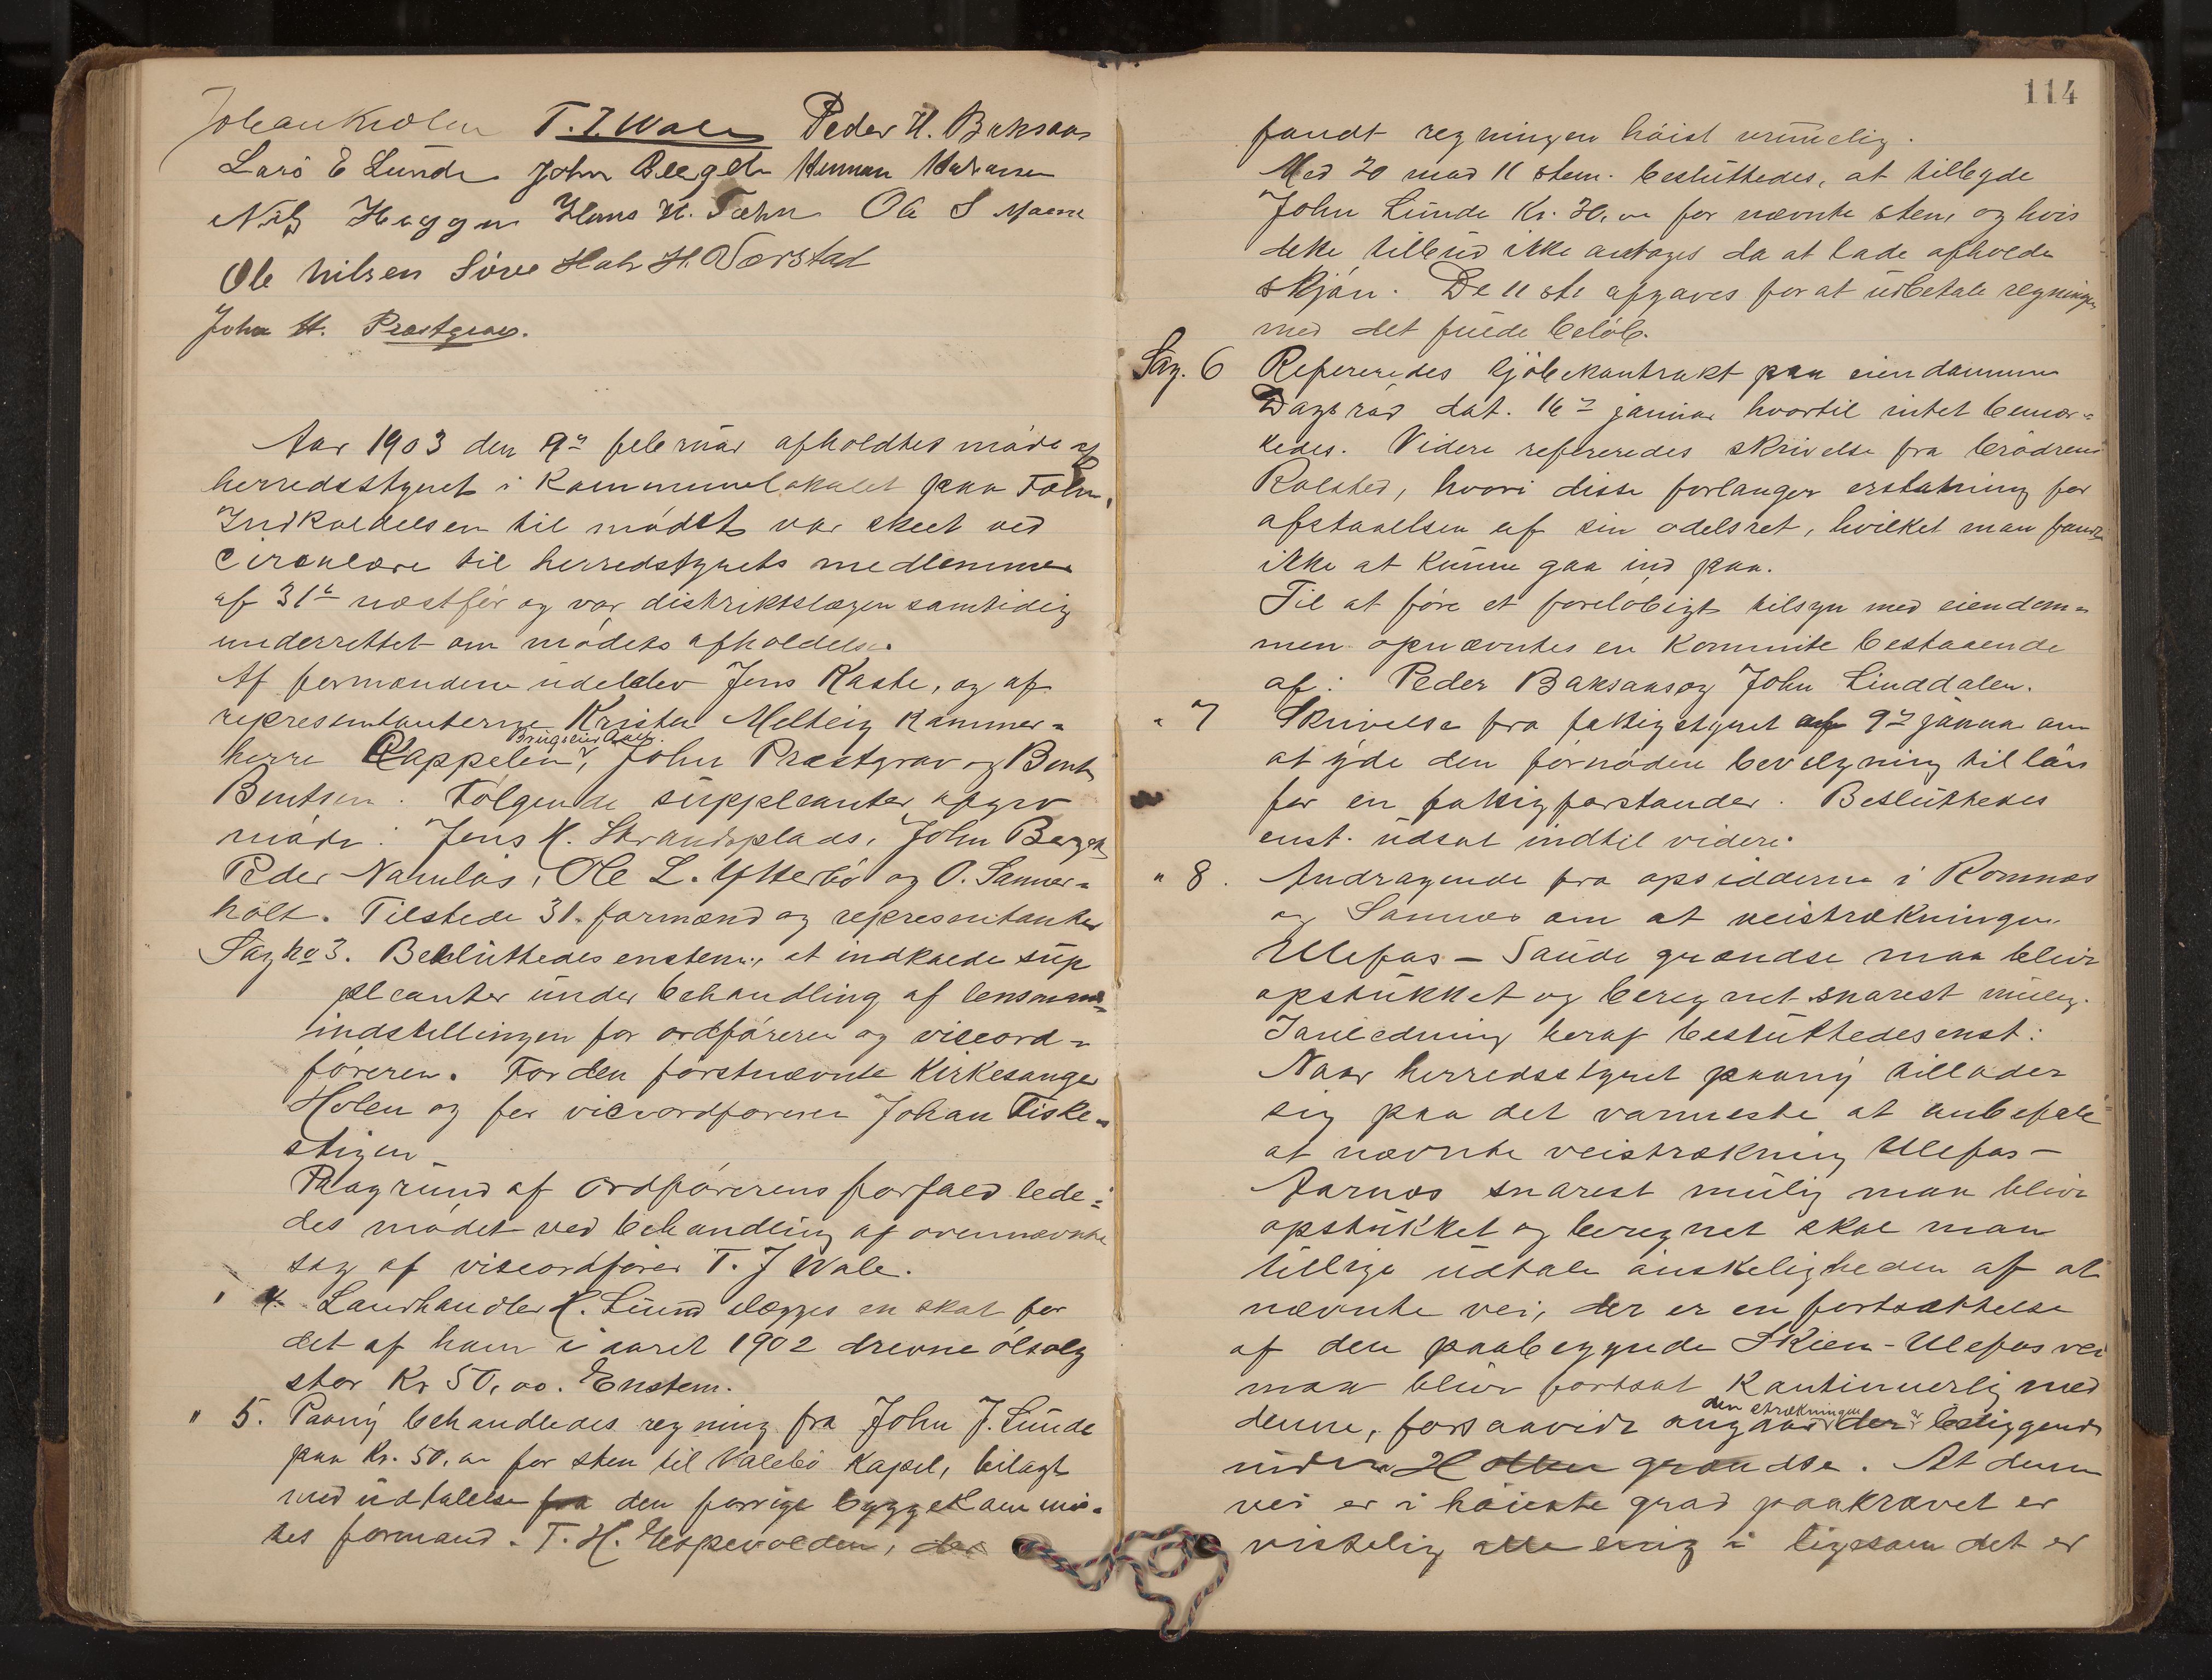 T. J. Wale Peder H. Baksaas
Lars E Lunde John Bergch Herman
Nils Heggen Hans H. Tæhn Ole S Moene
Ole Nilsen Sove Hals H. Verstad
John H. Præstgrav.
Aar 1903 den 9de februar afholdtes møde af
herredsstyret i Kommunelokalet paa
Indkaldelsen til mødet var skeet ved
circulære til herredstyrets medlemmer
af 31te næstfør og var distriktslægen samtidig
underrettet om mødets afholdelse.
Af formændene udeblev Jens Kaste, og af
repræsentanterne Kristen Melteig Kammer=
herre Cappelen, Brugseier Aall, John Præstgrav og Bent
Bentsen. Følgende suppleanter afgav
møde: Jens K. Strandsplads, John Bergch
Peder Namlös, Ole L. Ytterbö og O. Sanner=
holt. Tilstede 31 formænd og repræsentanter
Sag no 3. Besluttedes enstem. at indkalde sup
pleanter under behandling af lensmand=
indstillingen for ordføreren og viceord=
føreren. For den førstnævnte Kirkesanger
Holen og for viceordføreren Johan Fiske=
stigen
Paagrund af ordførerens forfald lede=
des mødet ved behandling af ovennævnte
sag af viceordfører T. J Wale.
" 4. Landhandler H. Lund ilægges en skat for
det af ham i aaret 1902 drevne ölsalg
stor Kr 50,00. Enstem.
" 5. Paany behandledes regning fra John J. Lunde
paa Kr. 50,00 for sten til Valebö Kapel, bilagt
med udtalelse fra den forrige byggekommi=
tes formand. T. H. Espevolden, der
114
fandt regningen høist urimelig.
Med 20 mod 11 stem. besluttedes, at tilbyde
John Lunde Kr. 30,00 for nævnte sten, og hvis
dette tilbud ikke antages da at lade afholde
skjøn. De 11 ste afgaves for at udbetale regningen
med det fulde beløb.
Sag. 6 Refereredes kjöbekontrakt paa eiendommen
Dagsrud dat. 16de januar hvortil intet bemær=
kedes. Videre refereredes skrivelse fra brødrene
Rolsted, hvori disse forlanger erstatning for
afstaaelsen af sin odelsret, hvilket man fandt
ikke at kunne gaa ind paa.
Til at føre et foreløbigt tilsyn med eiendom=
men opnævntes en Kommite bestaaende
af: Peder Baksaas og John Linddalen.
" 7 Skrivelse fra fattigstyret af 9de januar om
at yde den fornødne bevilgning til løn
for en fattigforstander. Besluttedes
enst. udsat indtil videre.
" 8. Andragende fra opsidderne i Romnes
og Sannes om at veistrækningen
Ulefos – Saude grændse maa blive
opstukket og beregnet snarest mulig.
I anledning heraf besluttedes enst:
Naar herredsstyret paany tillader
sig paa det varmeste at anbefale
at nævnte veistrækning Ulefos –
Aarnes snarest mulig maa blive
opstukket og beregnet skal man
tillige udtale ønskeligheden af at
nævnte vei, der er en fortsættelse
af den paabegynde Skien-Ulefos vei
maa blive fortsat Kontinuerlig med
denne, forsaavidt angaar den strækningen der er beliggende
inden Holden grændse. At denne
vei er i høieste grad paakrævet er
vistelig alle enig i ligesom det er